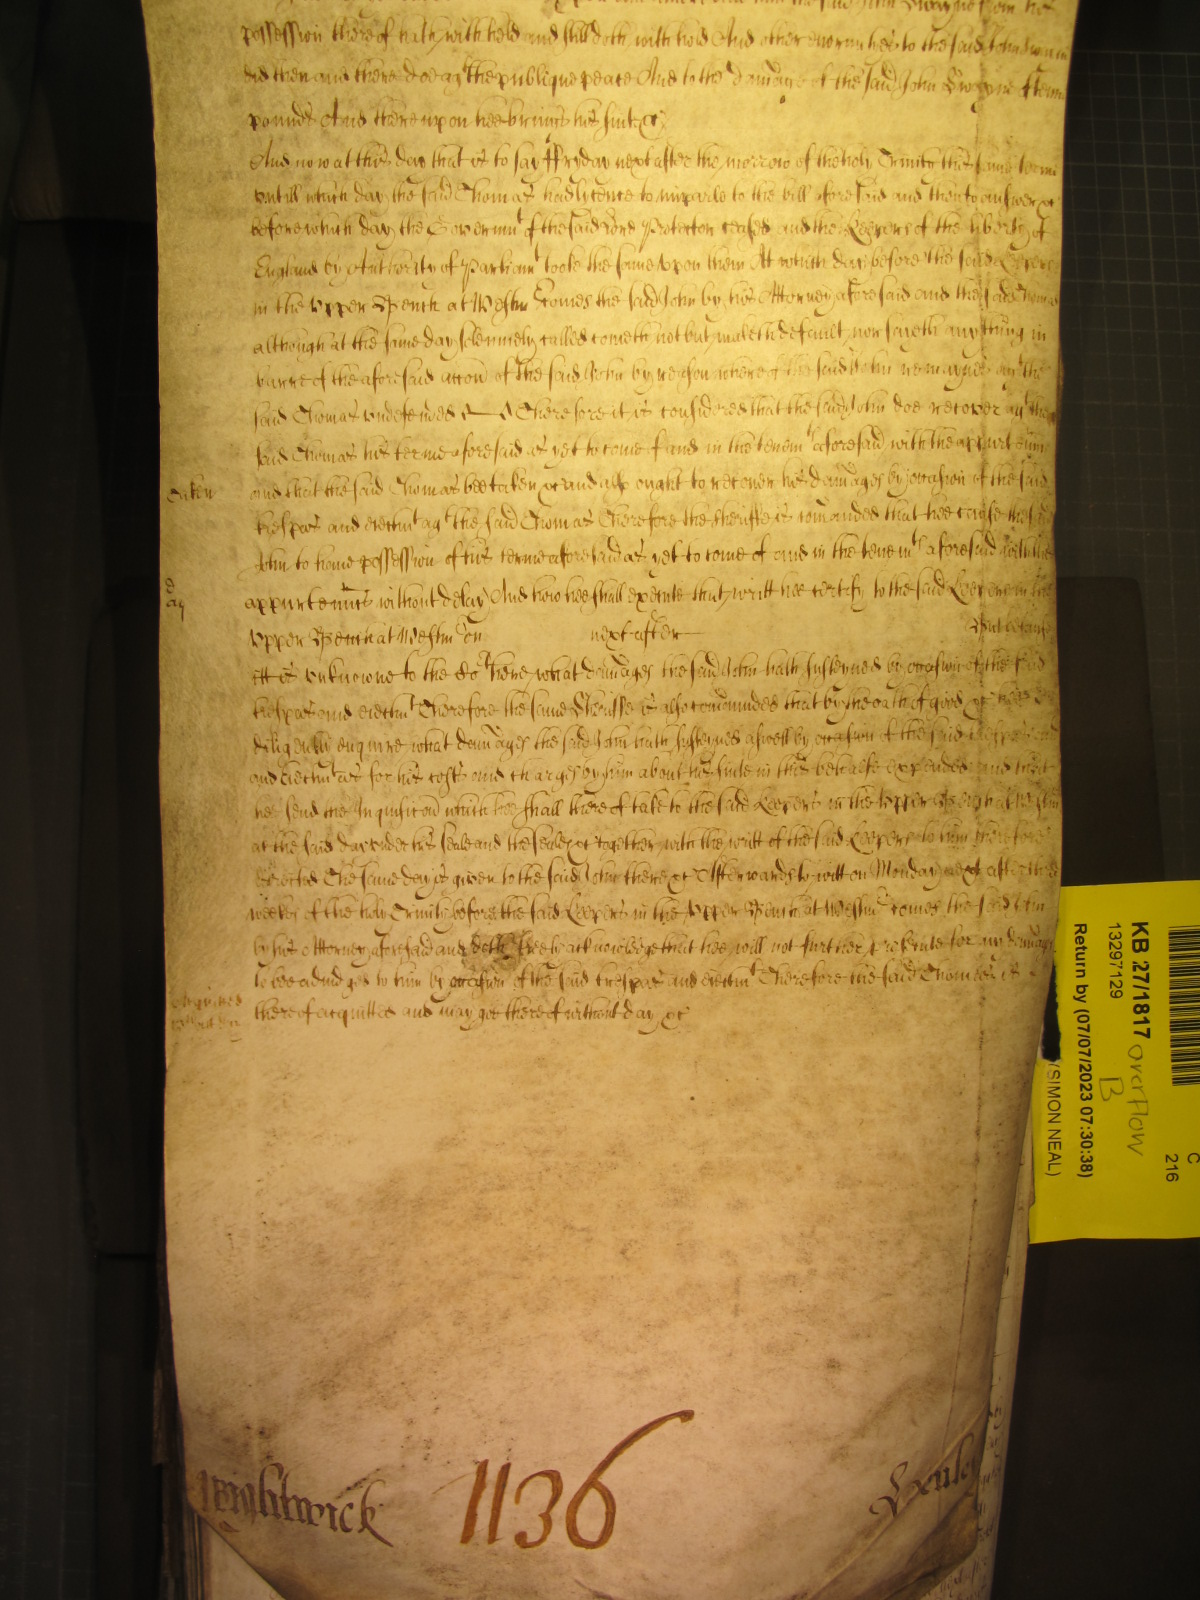 possession thereof hath withheld and still doth withhold And other enormities to the said John
did then and there doe agt the publique peace And to the damage of the said John Swayne
pounds And thereupon hee brings his suite &c
And now at this day that is to say ffryday next after the morrow of the holy Trinity this same terme
untill which day the said Thomas had lycence to imparle to the bill aforesaid and then to answer &c
before which day the Governmt of the said Lord Protector ceased and the Keepers of the liberty of
England by Authority of Parliamt tooke the same upon them At which day before the said Keepers
in the Upper Bench at Westmr comes the said John by his Attorney aforesaid and the said Thomas
although at the same day solemnely called cometh not but maketh default nor saieth any thing in
barre of the aforesaid accon of the said John by reason whereof the said John remaynes agt the
said Thomas undefended Therefore it is considered that the said John doe recover agt the
said Thomas his terme aforesaid as yet to come of and in the tenemts aforesaid with the appurtennces
and that the said Thomas bee taken &c and also ought to recover his damages by occasion of the said
trespas and ejectmt agt the said Thomas Therefore the sheriffe is comanded that hee cause the said
John to have possession of his terme aforesaid as yet to come of and in the tenemts aforesaid with the
appurtennces without delay And how hee shall execute that writt hee certify to the said Keepers in the
Upper Bench at Westmr on next after But because
itt is unknowne to the Cot here what damages the said John hath susteyned by occasion of the said
trespas and ejectmt Therefore the same Sheriffe is also commanded that by the oath of good &c hee
diligently enquire what damages the said John hath susteyned aswell by occasion of the said trespas and
and ejectmt as for his costs and charges by him about his suite in this behalfe expended and that
hee send the Inquisicon which hee shall thereof take to the said Keepers in the Upper Bench at Westmr
at the said day under his seale and the seales &c together with the writt of the said Keepers to him therefore
directed The same day is given to the said John there &c Afterwards to witt on Monday next after three
weekes of the holy Trinity before the said Keepers in the Upper Bench at Westmr comes the said John
by his Attorney aforesaid and doth freely acknowledge that hee will not further prosecute for any damages
to bee adjudged to him by occasion of the said trespas and ejectmt Therefore the said Thomas is
thereof acquitted and may goe thereof without day &c
taken
acquitted
1136
KB 27/1817 overflow
B
13297129
Return by (07/07/2023 07:30:38)
(SIMON NEAL)
C
216